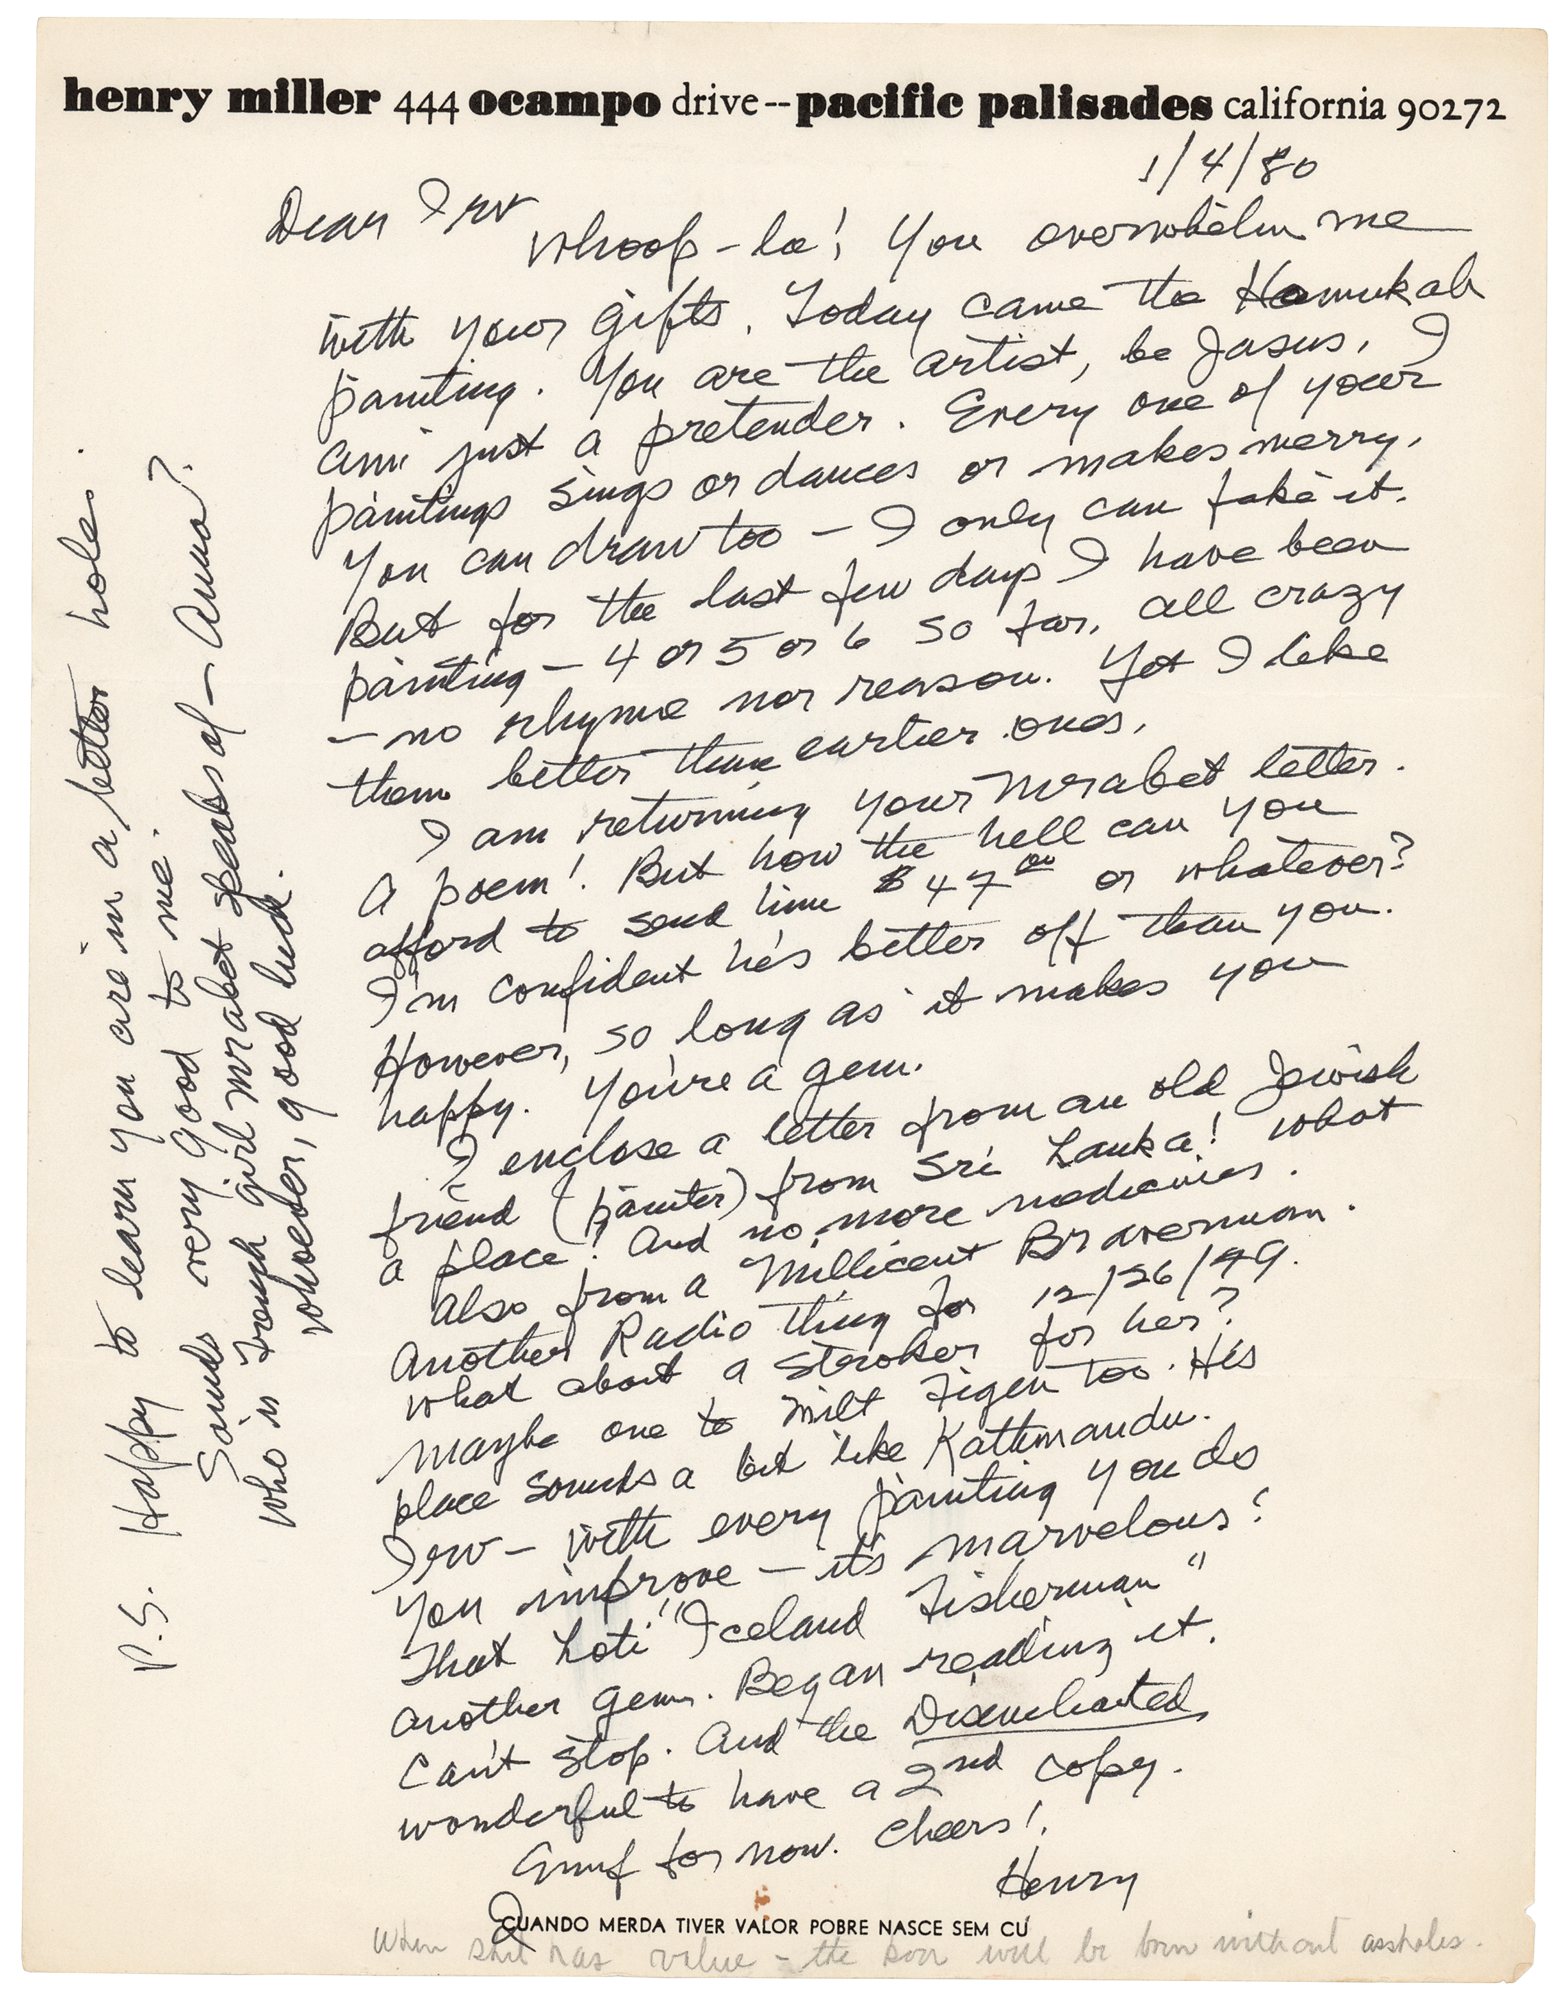 henry miller 444 ocampo drive -- pacific palisades california 90272
1/4/80
Dear Irv
Whoop-la! You overwhelm me
with your gifts. Today came the Hanukah
painting. You are the artist, be Jasus, I
am just a pretender. Every one of your
paintings sings or dances or makes merry.
You can draw too — I only can fake it.
But for the last few days I have been
painting — 4 or 5 or 6 so far, all crazy
— no rhyme nor reason. Yet I like
them better than earlier ones.
I am returning your Mrabet letter.
A poem! But how the hell can you
afford to send him $47.00 or whatever?
I'm confident he's better off than you.
However, so long as it makes you
happy. You're a gem.
I enclose a letter from an old Jewish
friend (painter) from Sri Lanka! What
a place! And no more medicines.
Also from a Millicent Braverman.
Another Radio thing for 12/26/79.
What about a Stroker for her?
Maybe one to Milt Figen too. His
place sounds a bit like Kathmandu.
Irv — with every painting you do
you improve — it's marvelous!
That Loti "Iceland Fisherman"
another gem. Began reading it.
Can't stop. And the Disenchanted
wonderful to have a 2nd copy.
Enuf for now. Cheers!
Henry
CUANDO MERDA TIVER VALOR POBRE NASCE SEM CU
When shit has value - the poor will be born without assholes.
P.S. Happy to learn you are in a better hole.
Sounds very good to me.
Who is French girl Mrabet speaks of — Anna?
Whoever, good luck.